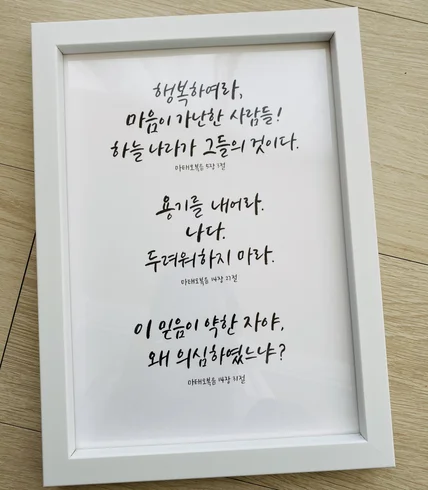 행복하여라,
마음이 가난한 사람들!
하늘 나라가 그들의 것이다.
마태오복음 5장 3절
용기를 내어라.
나다.
두려워하지 마라.
마태오복음 14장 27절
이 믿음이 약한 자야,
왜 의심하였느냐?
마태오복음 14장 31절